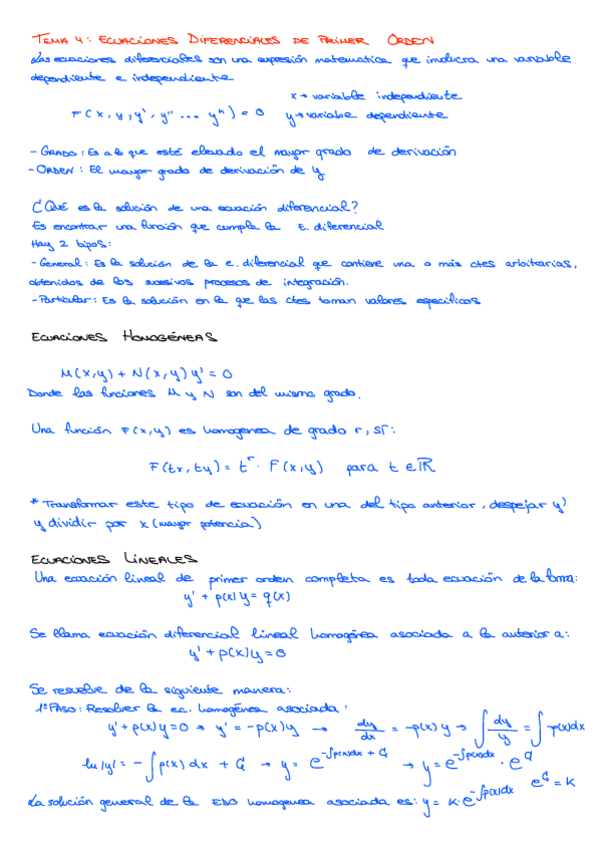 TEMA 4: ECUACIONES DIFERENCIALES DE PRIMER ORDEN
Las ecuaciones diferenciales son una expresión matematica que involucra una variable
dependiente e independiente
x → variable independiente
F(x, y, y', y'' ... yⁿ) = 0 y → variable dependiente
- GRADO: Es a lo que esté elevado el mayor grado de derivación
- ORDEN: El mayor grado de derivación de y
¿Qué es la solución de una ecuación diferencial?
Es encontrar una función que cumpla la E. diferencial
Hay 2 tipos:
- General: Es la solución de la e. diferencial que contiene una o más ctes arbitrarias,
obtenidos de los sucesivos procesos de integración.
- Particular: Es la solución en la que las ctes toman valores especificos
ECUACIONES HOMOGÉNEAS
M(x,y) + N(x,y) y' = 0
Donde las funciones M y N son del mismo grado.
Una función F(x,y) es homogenea de grado r, sí:
F(tx, ty) = t^r · F(x,y) para t ∈ ℝ
* Transformar este tipo de ecuación en una del tipo anterior, despejar y'
y dividir por x (mayor potencia)
ECUACIONES LINEALES
Una ecuación lineal de primer orden completa es toda ecuación de la forma:
y' + p(x) y = q(x)
Se llama ecuación diferencial lineal homogénea asociada a la anterior a:
y' + p(x) y = 0
Se resuelve de la siguiente manera:
1º PASO: Resolver la ec. homogénea asociada:
y' + p(x) y = 0 → y' = -p(x) y → dy/dx = -p(x) y → ∫ dy/y = ∫ -p(x) dx
ln|y| = - ∫ p(x) dx + C₁ → y = e^(-∫p(x)dx + C₁) → y = e^(-∫p(x)dx) · e^C₁
e^C₁ = K
La solución general de la EDO homogenea asociada es: y = K·e^(-∫p(x)dx)